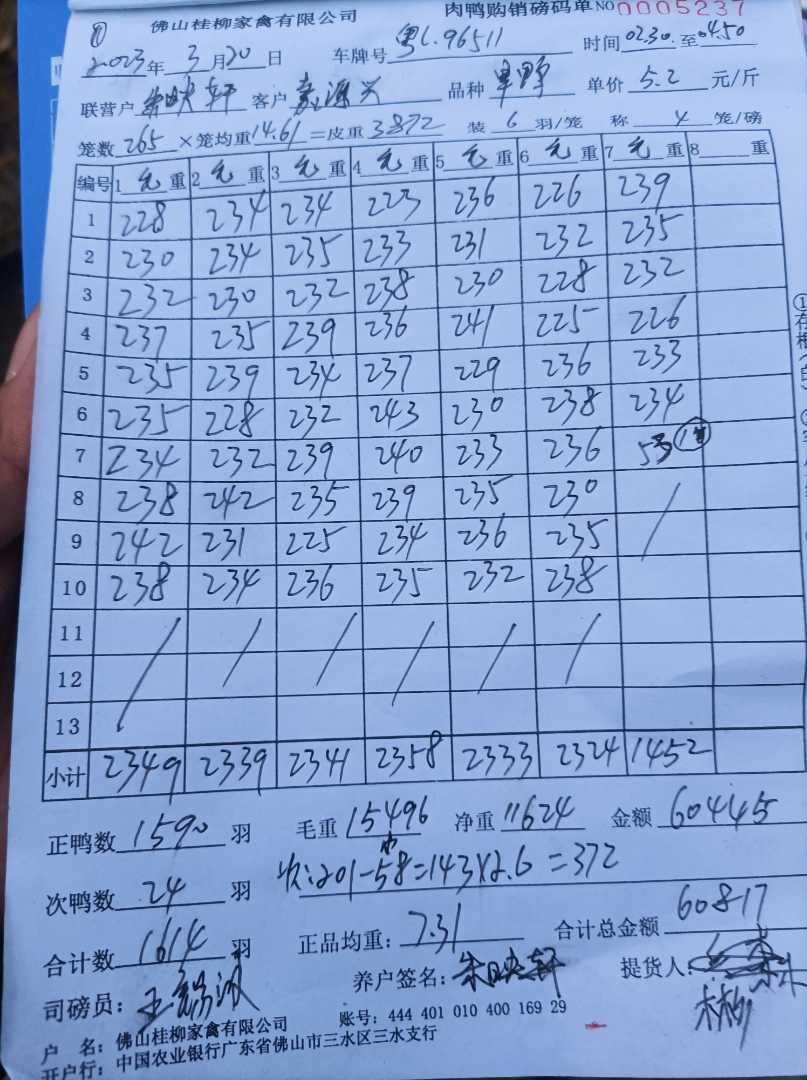 ① 佛山桂柳家禽有限公司 肉鸭购销磅码单 NO 0005237
2023年 3月20日 车牌号 粤L.96511 时间02.30.至04.50
联营户 客户 源兴 品种 单价 5.2 元/斤
笼数265 ×笼均重14.61=皮重3872 装 6 羽/笼 称 4 笼/磅
编号 1 元 重 2 元 重 3 元 重 4 元 重 5 元 重 6 元 重 7 元 重 8 重
1 228 234 234 223 236 226 239
2 230 234 235 233 231 232 235
3 232 230 232 238 230 228 232
4 237 235 239 236 241 225 226
5 235 239 234 237 229 236 233
6 235 228 232 243 230 238 234
7 234 232 239 240 233 236 53
8 238 242 235 239 235 230 /
9 242 231 225 234 236 235
10 238 234 236 235 232 238
11 / / / / / /
12
13
小计 2349 2339 2341 2358 2333 2324 1452
正鸭数 1590 羽 毛重 15496 净重 11624 金额 60445
次鸭数 24 羽 次:201-58=143×2.6=372
合计数 1614 羽 正品均重: 7.31 合计总金额 60817
司磅员: 养户签名: 提货人:
户 名: 佛山桂柳家禽有限公司 账号: 444 401 010 400 169 29
开户行: 中国农业银行广东省佛山市三水区三水支行
①存根(白)